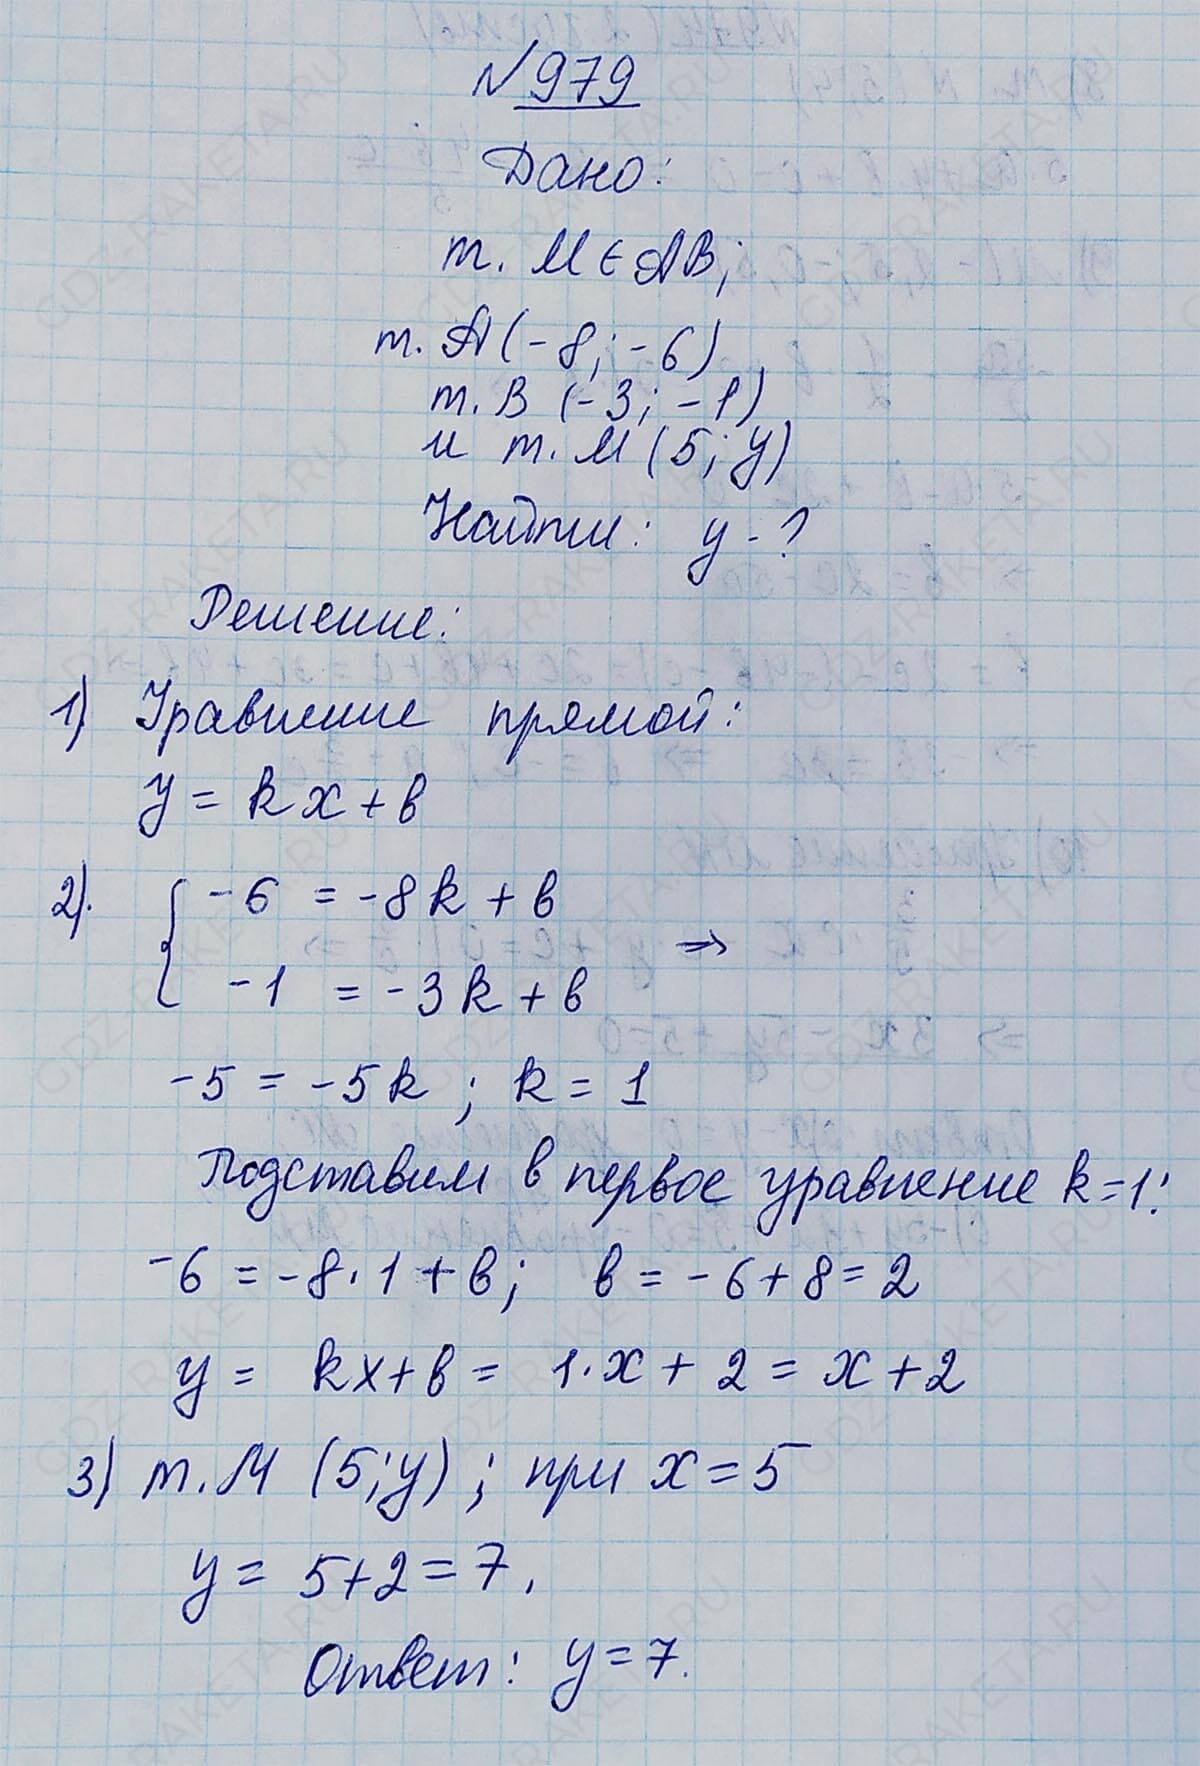 №979
Дано:
т. M ∈ AB;
т. A (-8; -6),
т. B (-3; -1)
и т. M (5; y)
Найти: y - ?
Решение:
1) Уравнение прямой:
y = kx + b
2). { -6 = -8k + b
-1 = -3k + b ⇒
-5 = -5k ; k = 1
Подставим в первое уравнение k=1:
-6 = -8·1 + b; b = -6+8 = 2
y = kx+b = 1·x + 2 = x+2
3) т. M (5; y) ; при x = 5
y = 5+2 = 7.
Ответ: y = 7.
GDZ-RAKETA.RU